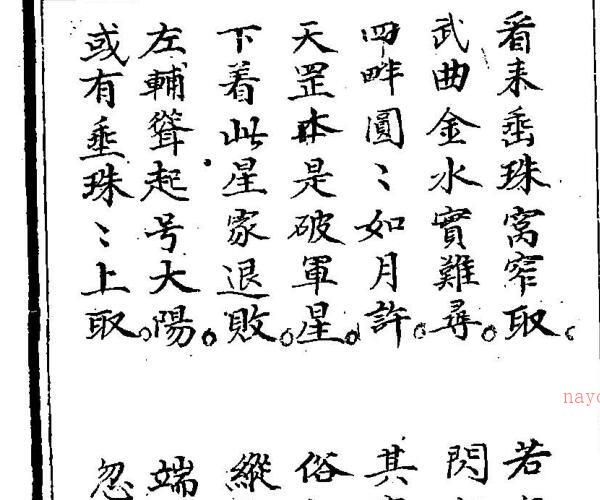 看来垂珠窩窄取。
武曲金水實難尋。
四畔圓〻如月許。
天罡本是破軍星。
下着此星家退敗。
左輔聳起号大陽。
或有垂珠〻上取。
若
閃
其
俗
縱
端
忽
nayo